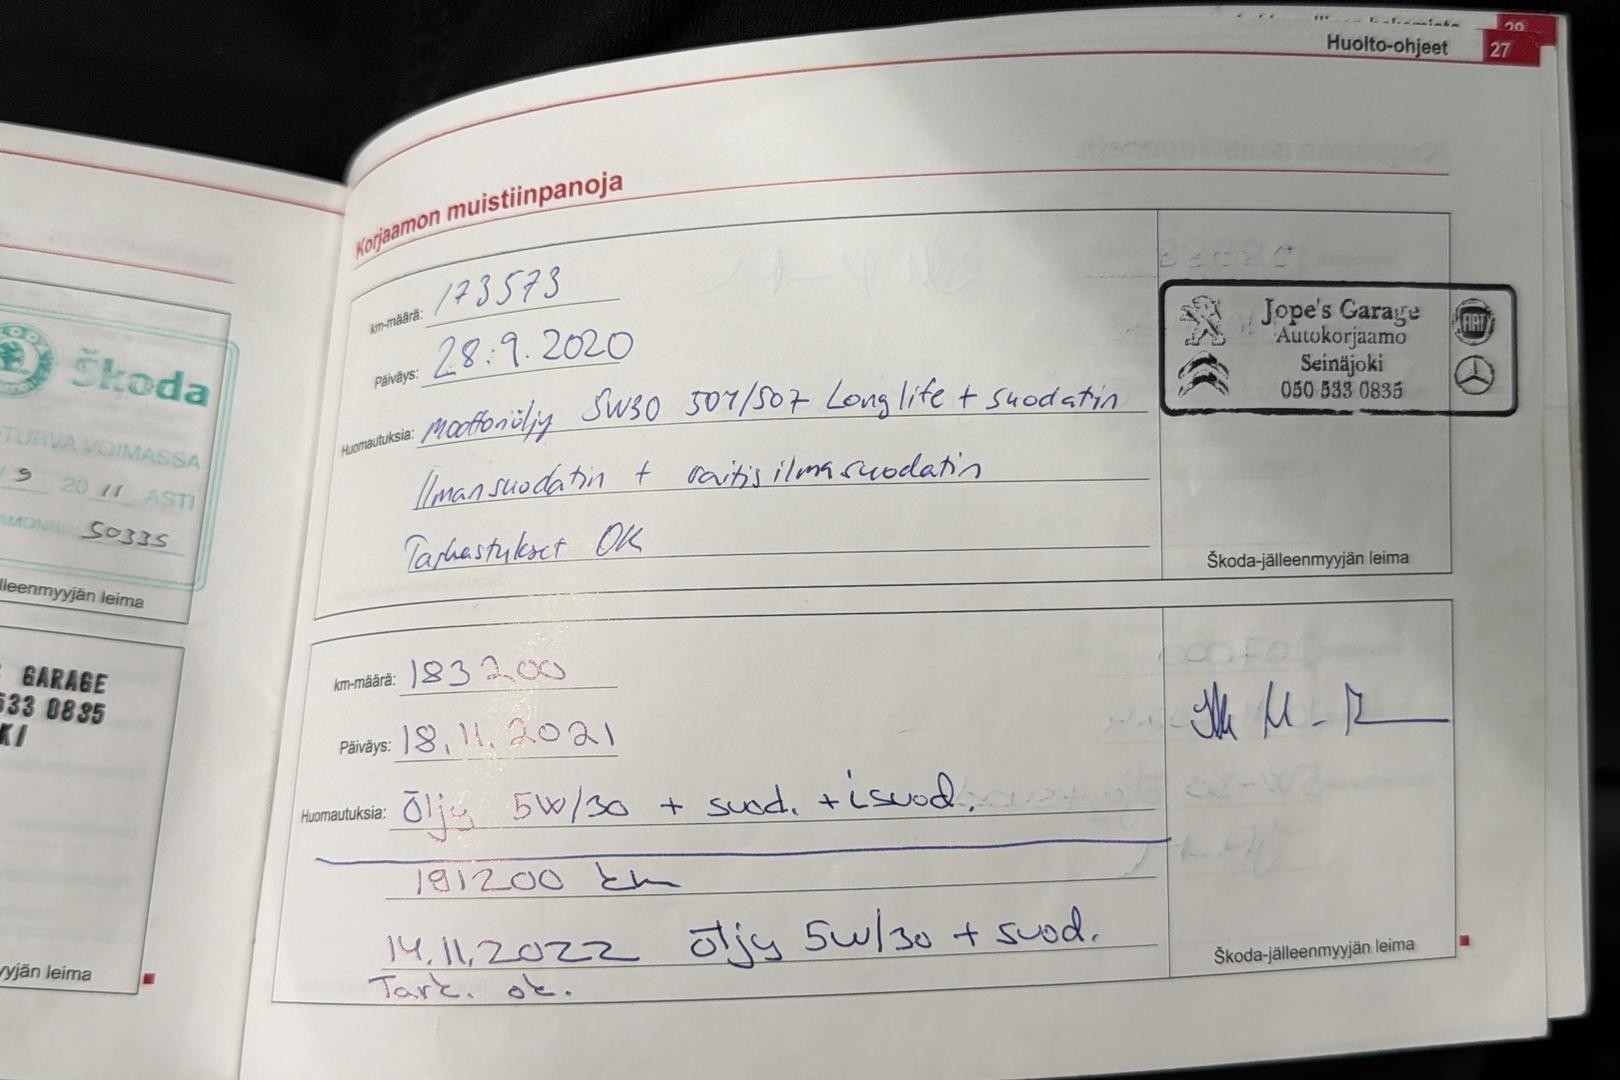 Škoda
TURVA VOIMASSA
9 20 11 ASTI
50335
jälleenmyyjän leima
GARAGE
533 0835
KI
yyjän leima
Huolto-ohjeet 27
Korjaamon muistiinpanoja
km-määrä: 173573
Päiväys: 28.9.2020
Huomautuksia: Moottoriöljy 5W30 507/507 Longlife + suodatin
Ilmansuodatin + raitisilmasuodatin
Tarkastukset OK
Jope's Garage
Autokorjaamo
Seinäjoki
050 533 0835
FIAT
Škoda-jälleenmyyjän leima
km-määrä: 183200
Päiväys: 18.11.2021
Huomautuksia: Öljy 5W/30 + suod. + isuod.
191200 km
14.11.2022 öljy 5W/30 + suod.
Tark. ok.
Škoda-jälleenmyyjän leima